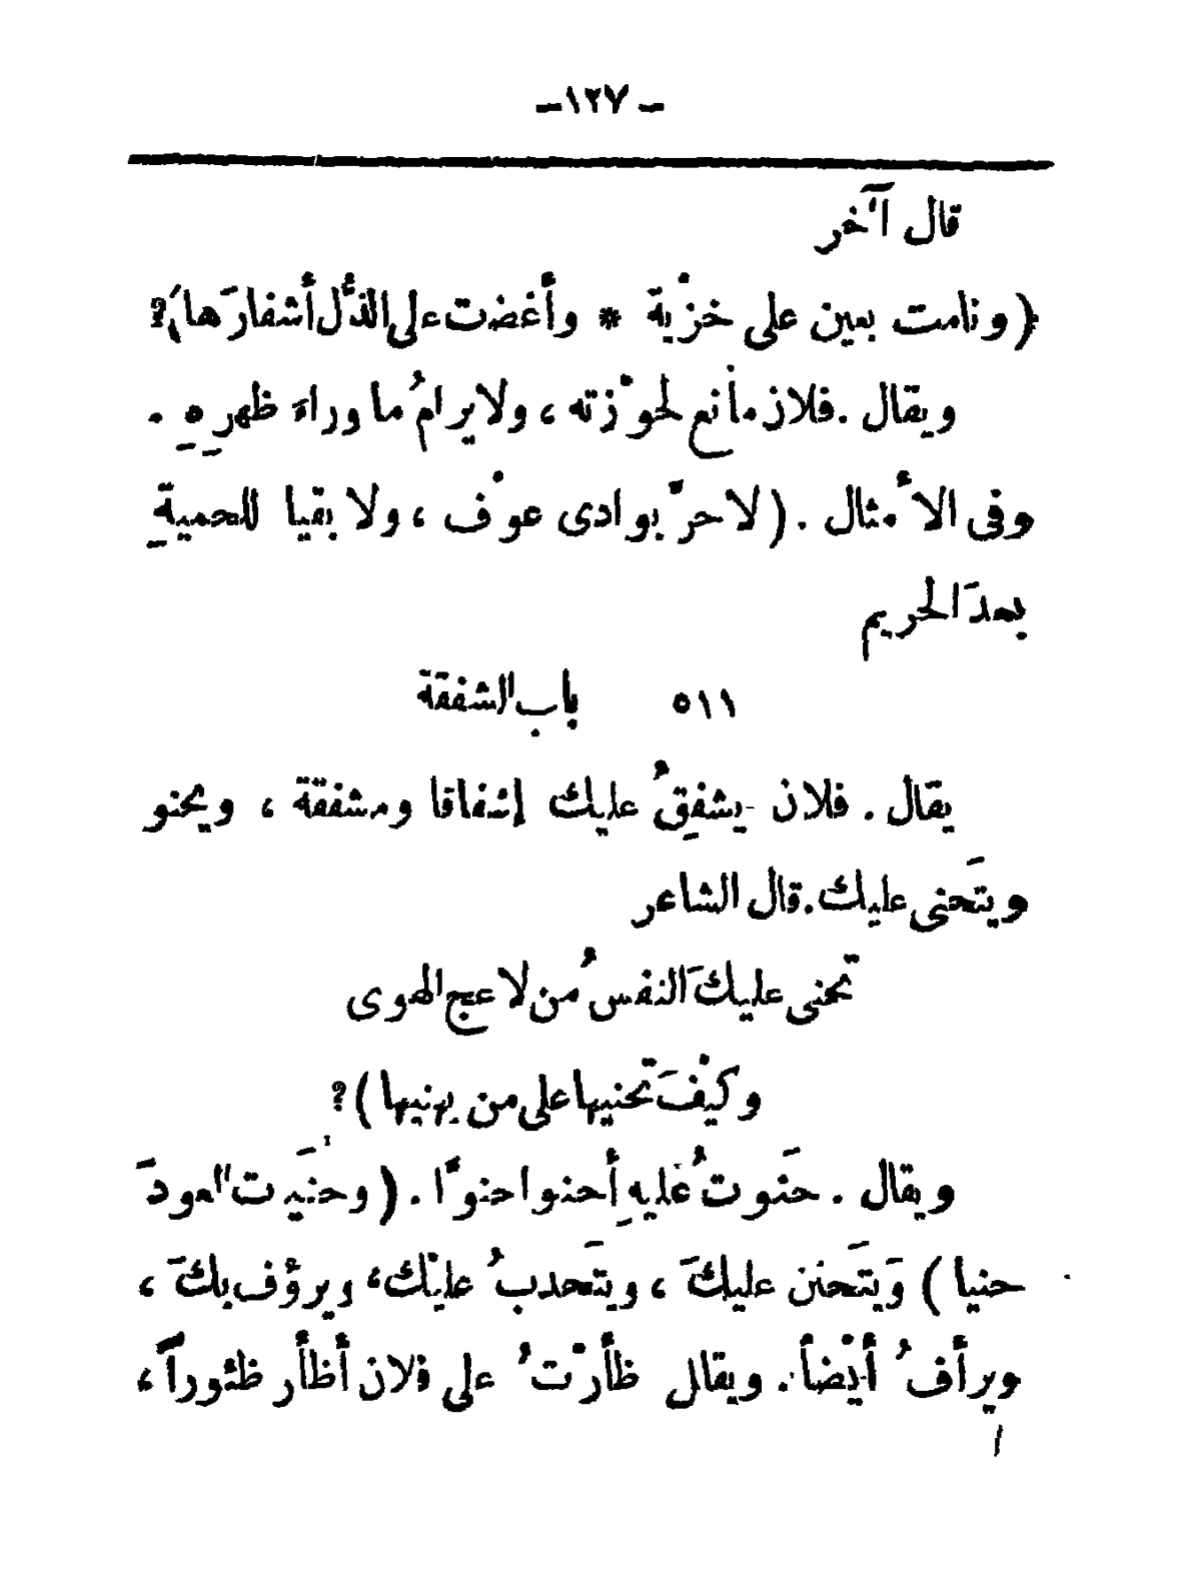 ـ ١٢٧ ـ
قال آخر
(ونامت بعين على خزْبة * وأغضت على الذُّل أشفارَها)؟
ويقال . فلان مانع لحوْزته ، ولا يرامُ ما وراءَ ظهرِهِ .
وفى الأمثال . (لا حرَّ بوادى عوْف ، ولا بقيا للحميةِ
بعدَ الحريم
٥١١ باب الشفقة
يقال . فلان يشفِقُ عليك إشفاقا ومشفقة ، ويحنو
ويتَحنى عليك . قال الشاعر
تحنى عليكَ النفسُ من لاعج الهوى
وكيْفَ تحنيها على من يهنيها)؟
ويقال . حنَوتُ عليهِ أحنوا حنوًّا . (وحنَيت العودَ
حنيا) وَيتَحنن عليكَ ، ويتَحدبُ عليْك، ويرؤف بكَ ،
ويرأفُ أيْضاً. ويقال ظأرْتُ على فلان أظأر ظئوراً،